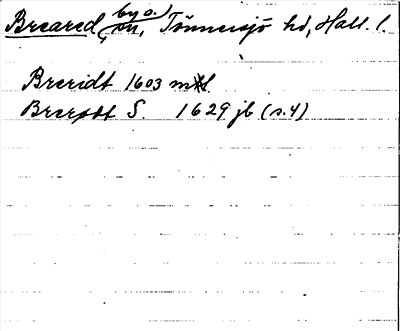 Breared, by o. sn, Tönnersjö hd, Hall. l.
Breridt 1603 mtl
Breredt S. 1629 jb (s.4)